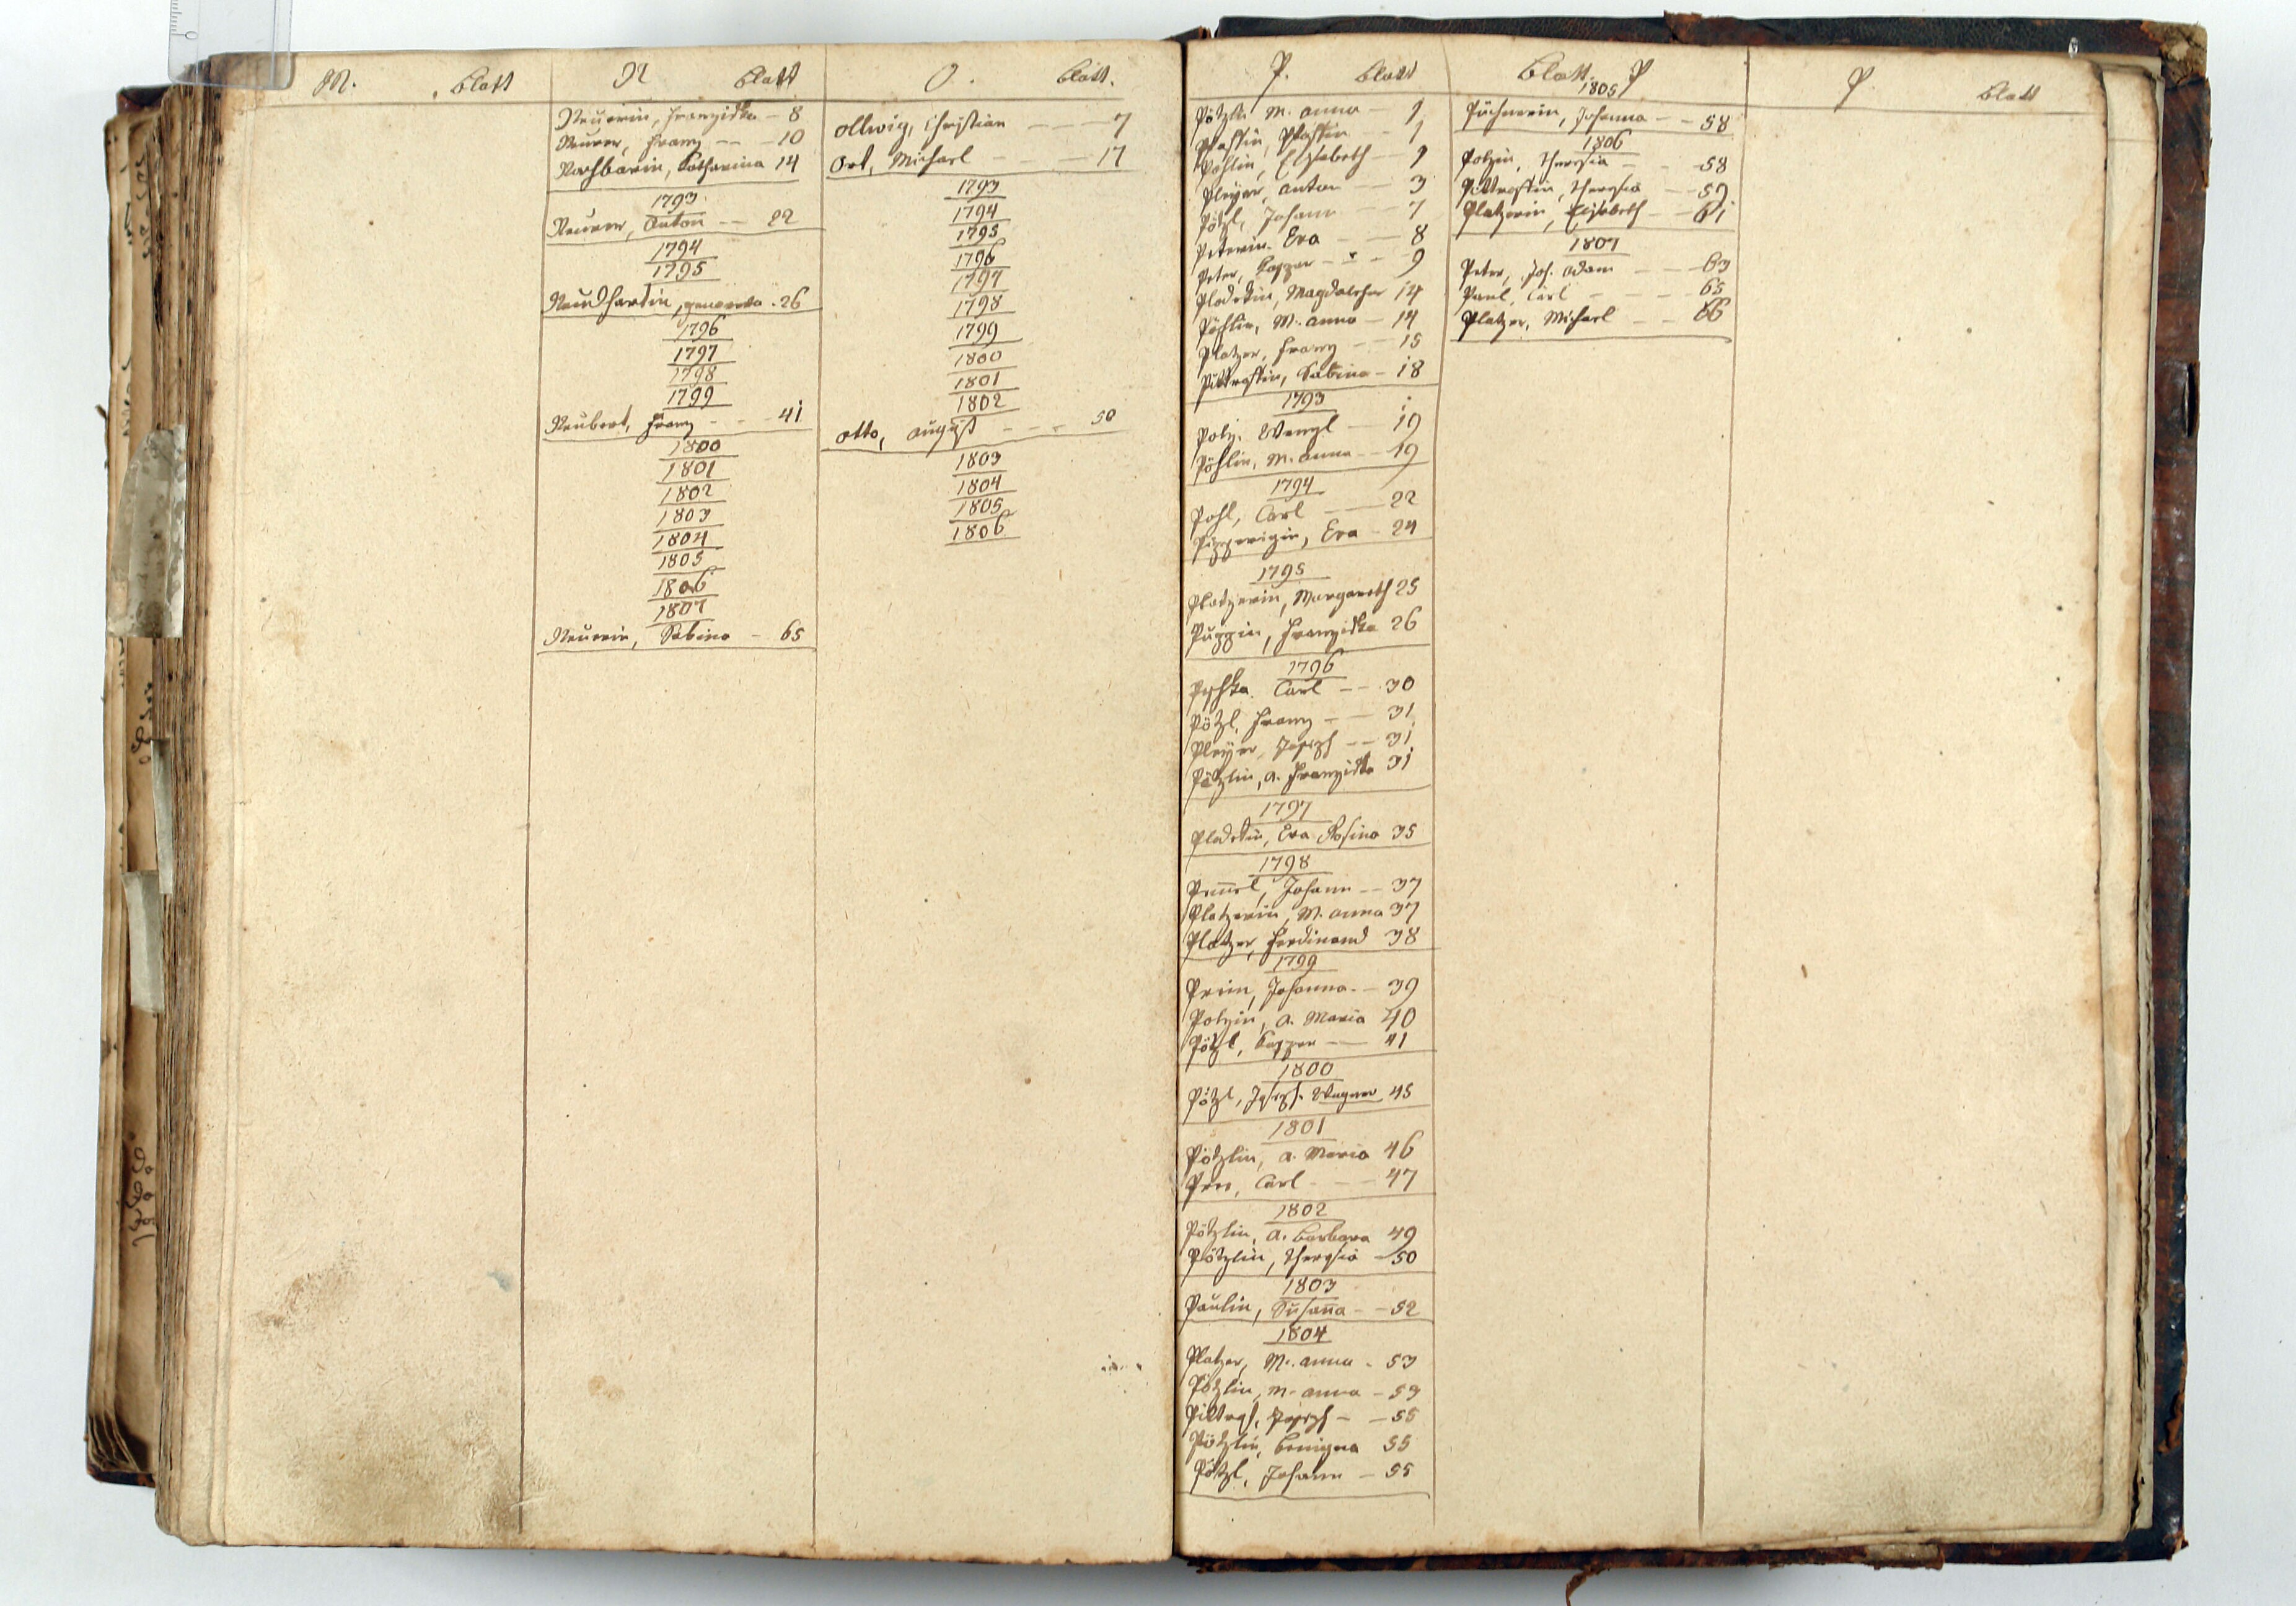 M. Blatt
N Blatt
Neuerin, Franziska - 8
Neuerer, Franz - - 10
Nachbarin, Katharina 14
1793
Neuerer, Anton - - 22
1794
1795
Neudhartin, Genovefa - 26
1796
1797
1798
1799
Neubert, Franz - - - 41
1800
1801
1802
1803
1804
1805
1806
1807
Neuerin, Sabina - 65
O. Blatt.
Ollwig, Christian - - - 7
Ort, Michael - - - 17
1793
1794
1795
1796
1797
1798
1799
1800
1801
1802
Otto, August - - - 50
1803
1804
1805
1806
P. Blatt
Pötzlin M. Anna - 1
Elisabeth - 1
Pleyer, Anton - 3
Pötzl, Johann - 7
Peterin, Eva - 8
Peter, Kaspar - - - 9
Magdalena 14
Pöhlin, M. Anna - 14
Platzer, Franz - - 15
Pittrofin, Sabina - 18
1793
Polz, Wenzl - 19
Pöhlin, M. Anna - - 19
1794
Pohl, Carl - - 22
Eva - 24
1795
Platzerin, Margareth 25
Franziska 26
1796
Peschka Carl - - 30
Pötzl, Franz - - 31
Pleyer, Joseph - - 31
Pötzlin, A. Franziska 31
1797
Eva Rosina 35
1798
Johann - - 37
Platzerin, M. Anna 37
Platzer, Ferdinand 38
1799
Johanna - - 39
Polzin, A. Maria 40
Pötzl, Kaspar - - 41
1800
Pötzl, Joseph Wagner 45
1801
Pötzlin, A. Maria 46
Carl - - - 47
1802
Pötzlin, A. Barbara 49
Pötzlin, Theresia - 50
1803
Paulin, Susanna - - 52
1804
Platzer, M. Anna - 53
Pötzlin, M. Anna - 53
Pittrof, Joseph - - 55
Pötzlin, Benigna 55
Pötzl, Johann - 55
Blatt. P
1805
Johanna - - 58
1806
Polzin, Theresia - - 58
Pittrofin, Theresia - - 59
Platzerin, Elisabeth - - 61
1807
Peter, Joh. Adam - - 63
Paul, Carl - - - 65
Platzer, Michael - - 66
P Blatt